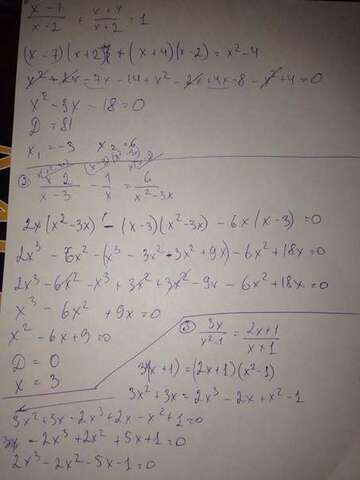 x-7/x-2 + x+4/x+2 = 1
(x-7)(x+2) + (x+4)(x-2) = x²-4
x²+2x-7x-14+x²-2x+4x-8-x²+4=0
x²-3x-18=0
D=81
x₁=-3 x₂=6
② 2/x-3 - 1/x = 6/x²-3x
2x(x²-3x) - (x-3)(x²-3x) - 6x(x-3) = 0
2x³-6x²-(x³-3x²-3x²+9x)-6x²+18x=0
2x³-6x²-x³+3x²+3x²-9x-6x²+18x=0
x³-6x²+9x=0
x²-6x+9=0
D=0
x=3
③ 3x/x²-1 = 2x+1/x+1
3x(x+1)=(2x+1)(x²-1)
3x²+3x=2x³-2x+x²-1
3x²+3x-2x³+2x-x²+1=0
-2x³+2x²+5x+1=0
2x³-2x²-5x-1=0